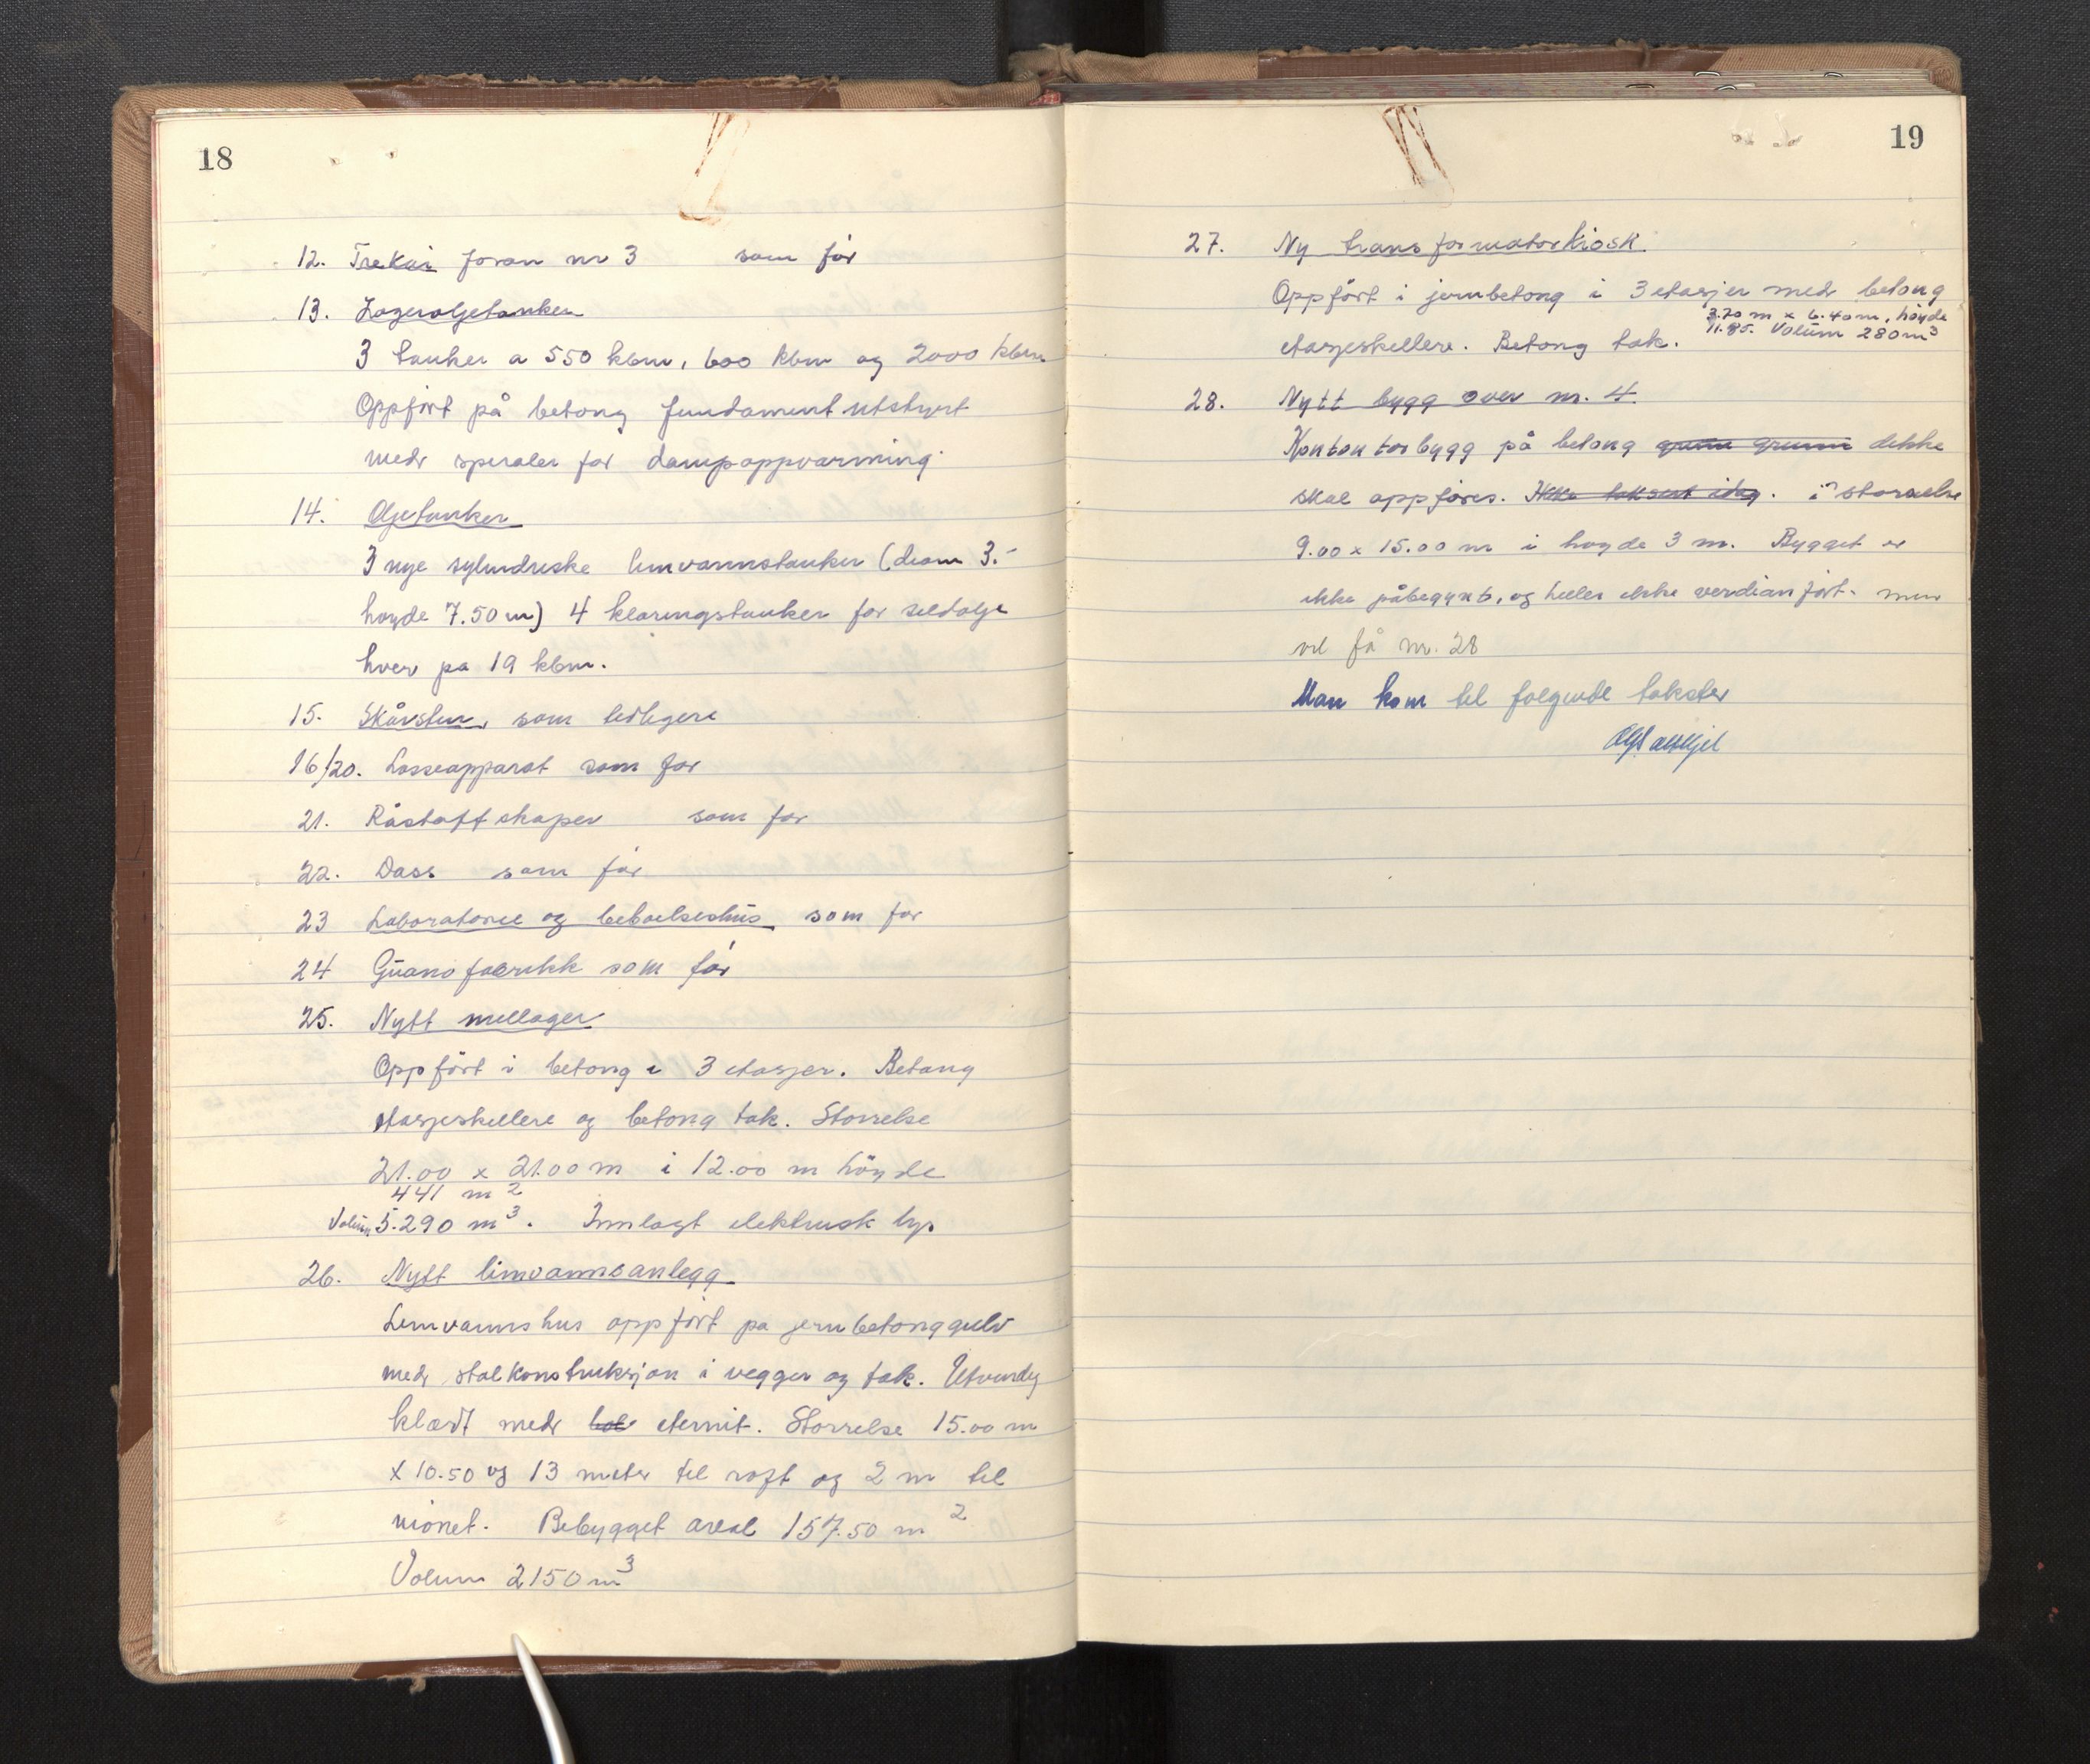 18
12. Trekai foran nr 3 som før
13. Lageroljetanker
3 tanker a 550 kbm, 600 kbm og 2000 kbm
Oppført på betong fundament utstyrt
med speraler for dampoppvarming.
14. Oljetanker
3 nye sylindriske limvannstanker (diam 3.-
høyde 7.50 m) 4 klaringstanker for sildolje
hver pa 19 kbm.
15. Skårsten, som tidligere
16/20. Losseapparat som før
21. Råstoffskaper som før
22. Dass som før
23 Laboratorie og beboelseshus som før
24 Guanofabrikk som før
25. Nytt mellager
Oppført i betong i 3 etasjer. Betong
etasjeskillere og betong tak. Størrelse
21.00 x 21.00 m i 12.00 m höyde
441 m2
Volum 5.290 m3. Innlagt elektrisk lys
26. Nytt limvannsanlegg
Limvannshus oppført pa jernbetonggulv
med stalkonstruksjon i vegger og tak. Utvendig
klædt med eternit. Størrelse 15.00 m
x 10.50 og 13 meter til raft og 2 m til
mønet. Bebygget areal 157.50 m2
Volum 2150 m3
19
27. Ny transformatorkiosk.
Oppført i jernbetong i 3 etasjer med betong
3.70 m x 6.40 m, höyde
etasjeskillere. Betong tak. 11.85. Volum 280 m3
28. Nytt bygg over nr. 4.
Kontontorbygg på betong grunn dekke
skal oppføres. Ikke taksert idag. i størrelse
9.00 x 15.00 m i høyde 3 m. Bygget er
ikke påbegynt, og heller ikke verdianført. men
vil få nr. 28
Man kom til følgende takster